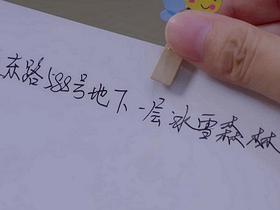 东路588号地下一层冰雪森林